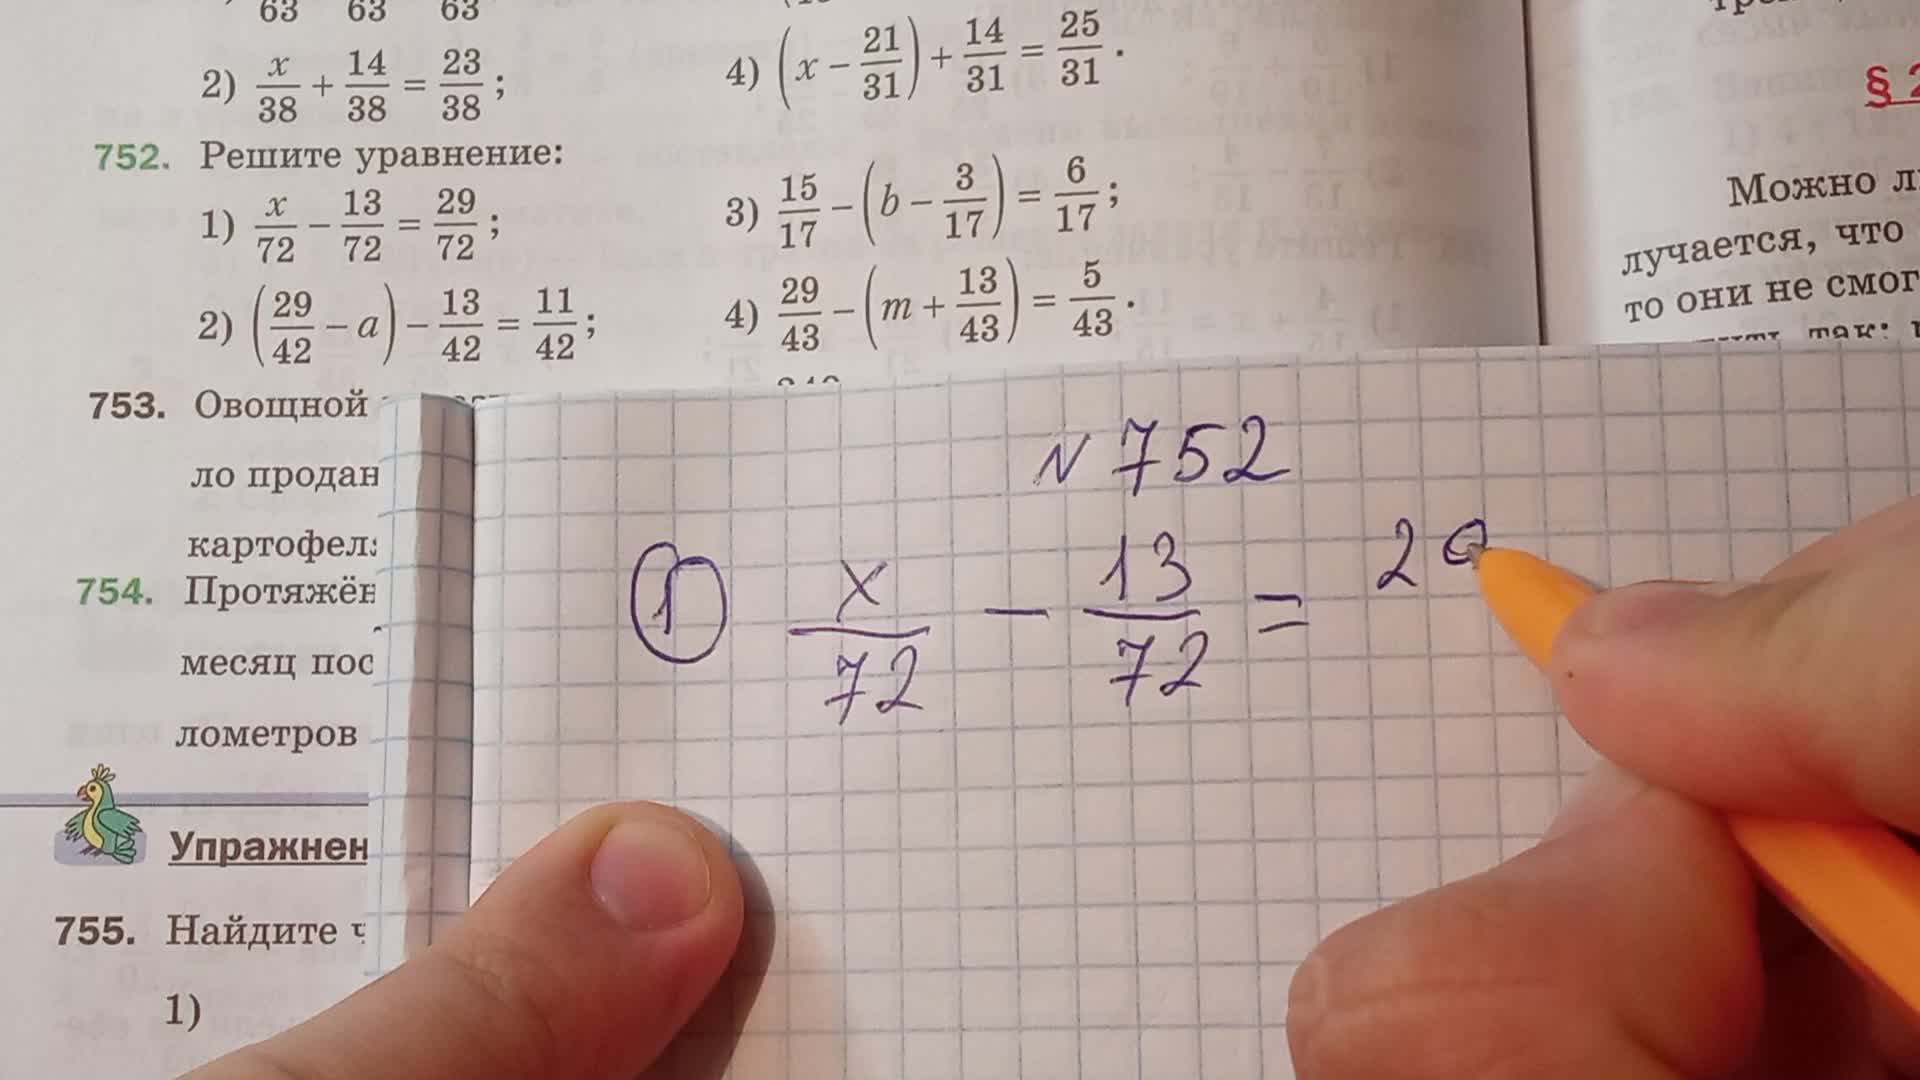 63 63 63
2) x/38 + 14/38 = 23/38 ;
4) (x − 21/31) + 14/31 = 25/31 .
752. Решите уравнение:
1) x/72 − 13/72 = 29/72 ;
2) (29/42 − a) − 13/42 = 11/42 ;
3) 15/17 − (b − 3/17) = 6/17 ;
4) 29/43 − (m + 13/43) = 5/43 .
753. Овощной
ло продан
картофел
754. Протяжён
месяц пос
лометров
Упражнен
755. Найдите ч
1)
§ 2
Можно л
лучается, что
то они не смог
так:
N 752
1 x/72 − 13/72 = 29